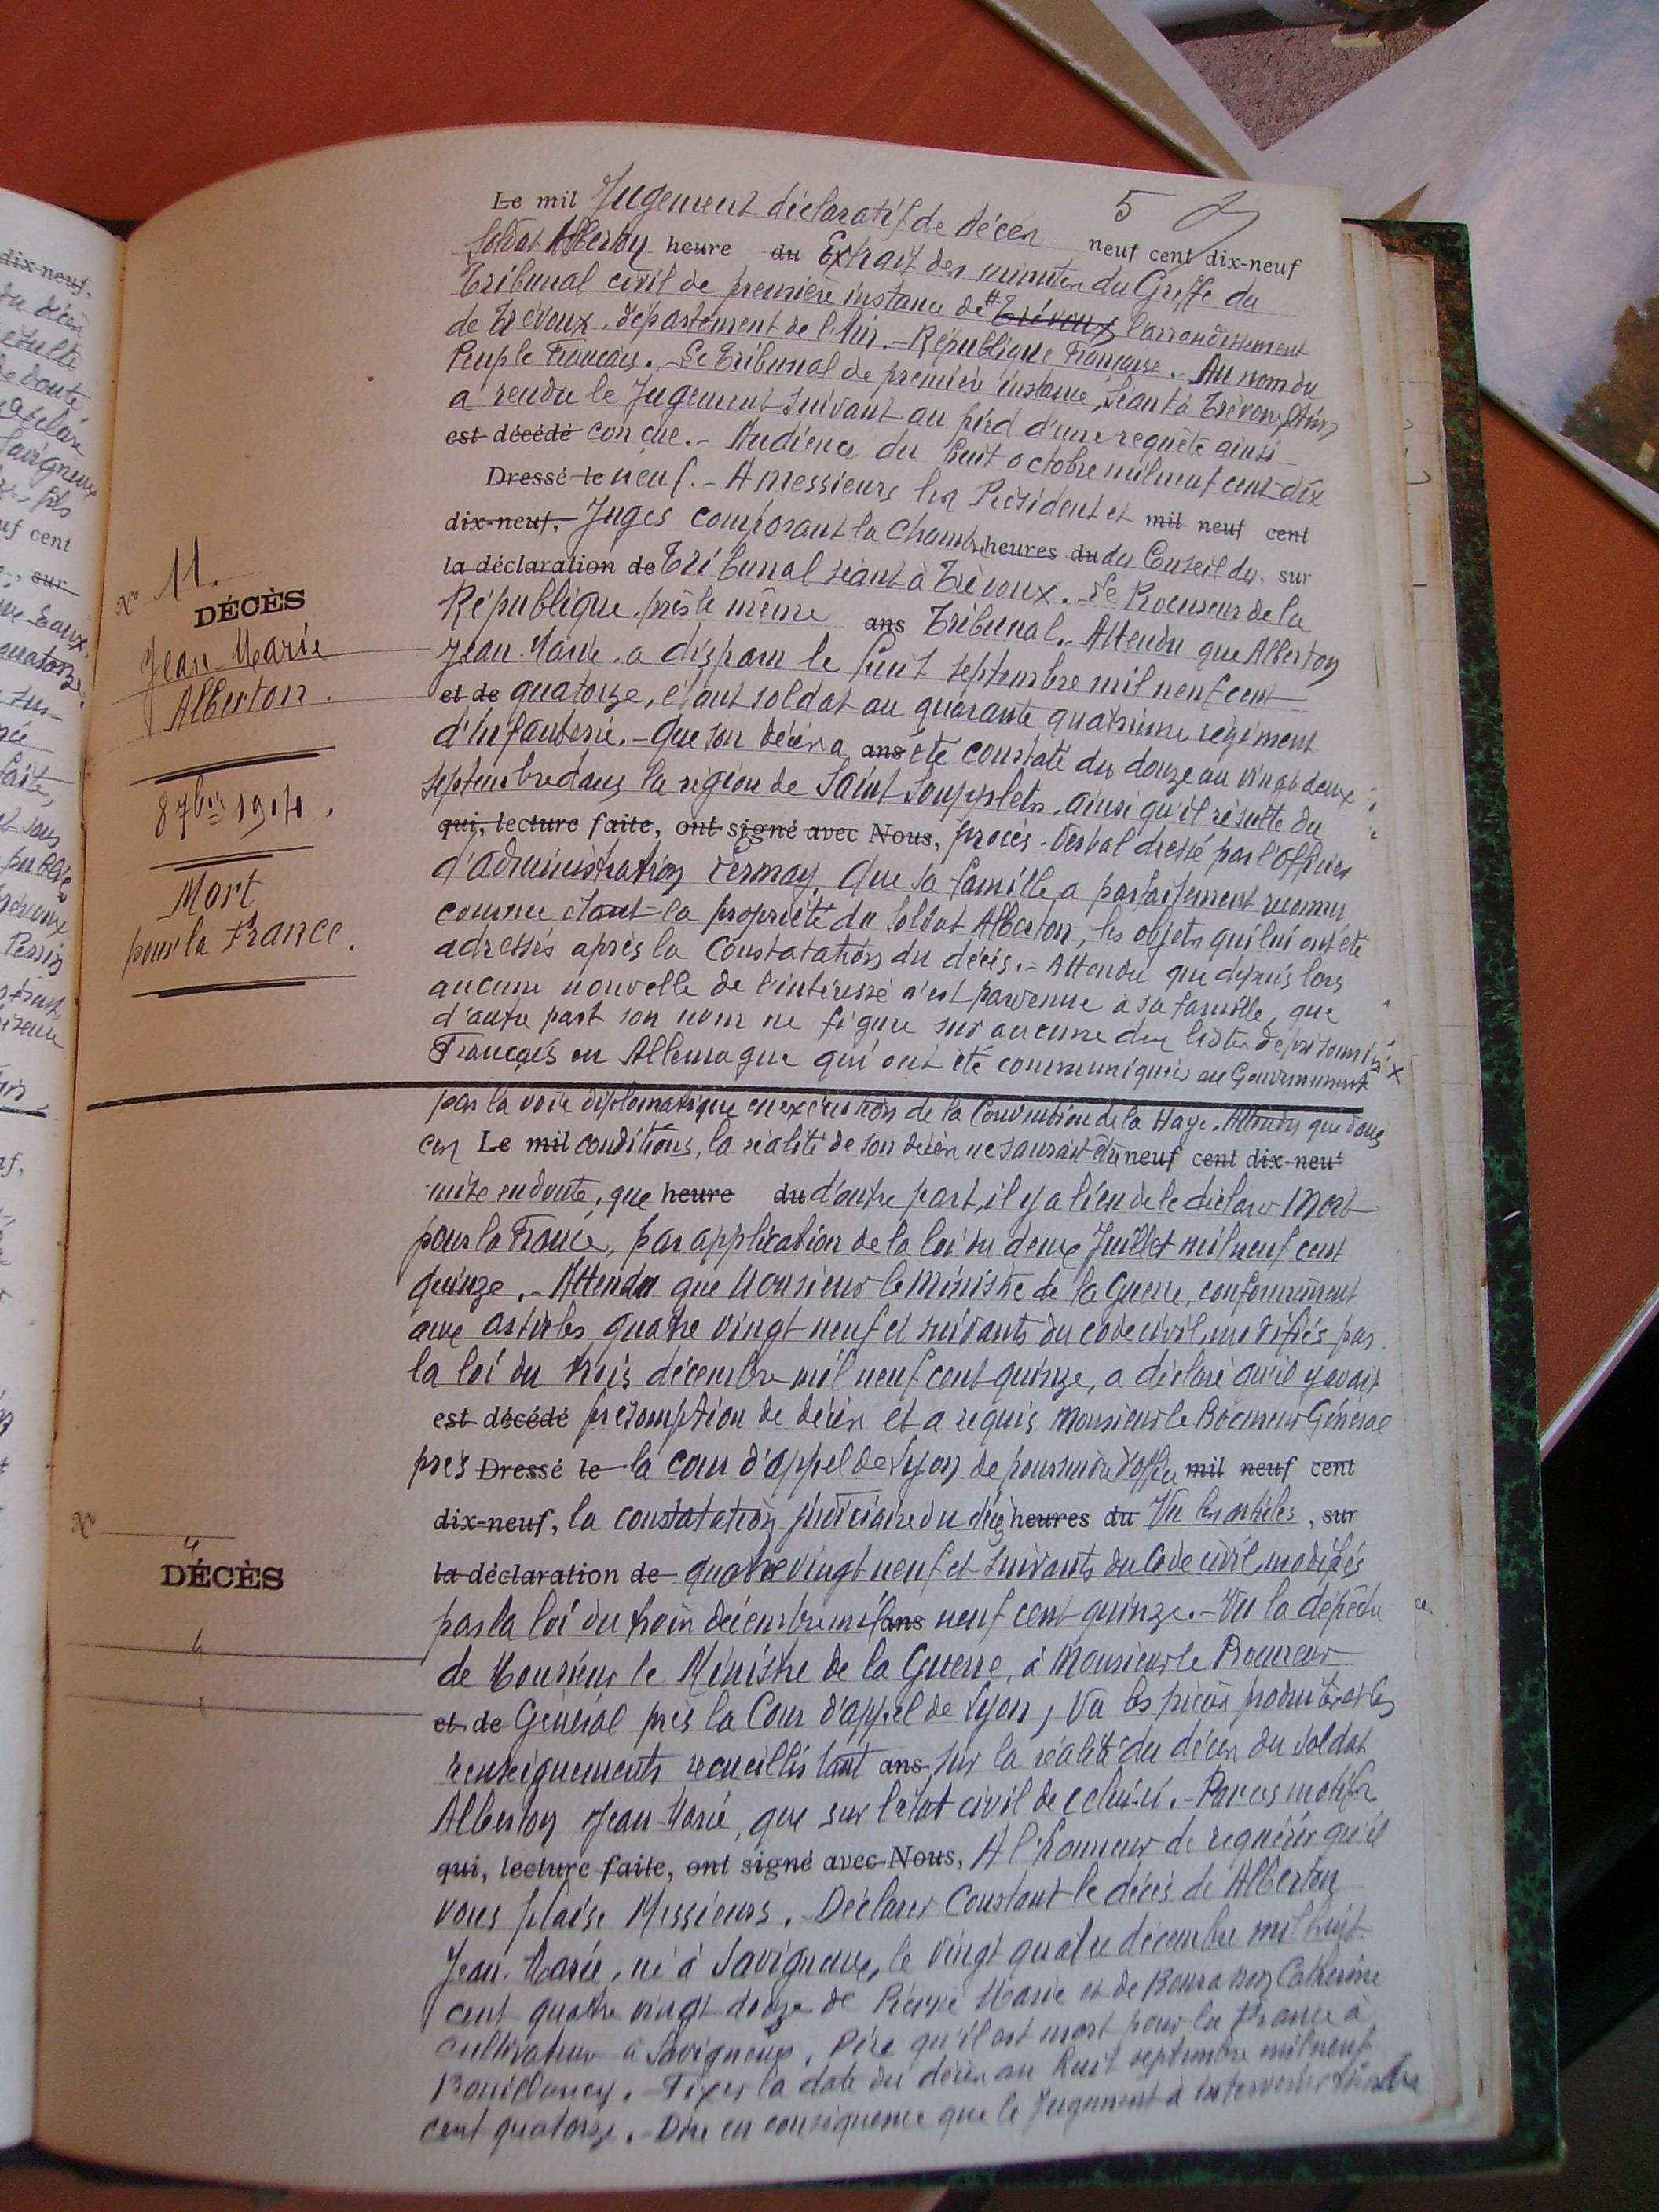 5
Le mil Jugement déclaratif de décès neuf cent dix-neuf
Soldat Alberton heure du Extrait des minutes du Greffe du
Tribunal civil de première instance de # Trévoux l'arrondissement
de Trévoux, département de l'Ain. - République Française. - Au nom du
Peuple Français. - Le Tribunal de première instance, séant à Trévoux (Ain)
a rendu le Jugement suivant au pied d'une requête ainsi
est décédé conçue. - Audience du huit octobre mil neuf cent dix
Dressé le neuf. - A messieurs les Président et mil neuf cent
dix-neuf, Juges composant la Chambre heures du du Conseil du, sur
la déclaration de Tribunal séant à Trévoux. - Le Procureur de la
République, près le même ans Tribunal. - Attendu que Alberton
Jean-Marie a disparu le huit septembre mil neuf cent
et de quatorze, étant soldat au quarante quatrième régiment
d'Infanterie. - Que son décès a ans été constaté du douze au vingt deux
septembre dans la région de Saint Soupplets, ainsi qu'il résulte du
qui, lecture faite, ont signé avec Nous, procès-verbal dressé par l'officier
d'administration Vermay. Que sa famille a parfaitement reconnu
comme étant la propriété du soldat Alberton, les objets qui lui ont été
adressés après la constatation du décès. - Attendu que depuis lors
aucune nouvelle de l'intéressé n'est parvenue à sa famille, que
d'autre part son nom ne figure sur aucune des listes de prisonniers
Français en Allemagne qui ont été communiquées au Gouvernement
par la voie diplomatique en exécution de la Convention de la Haye. Attendu que dans
ces Le mil conditions, la réalité de son décès ne saurait être neuf cent dix-neuf
mise en doute, que heure du d'autre part, il y a lieu de le déclarer Mort
pour la France, par application de la loi du deux Juillet mil neuf cent
quinze. - Attendu que Monsieur le Ministre de la Guerre, conformément
aux articles quatre vingt neuf et suivants du code civil, modifiés par
la loi du trois décembre mil neuf cent quinze, a déclaré qu'il y avait
est décédé présomption de décès et a requis Monsieur le Procureur Général
près Dressé le la cour d'appel de Lyon de poursuivre d'office mil neuf cent
dix-neuf, la constatation judiciaire du décès heures du Vu les articles, sur
la déclaration de quatre vingt neuf et suivants du Code civil, modifiés
par la loi du trois décembre mil ans neuf cent quinze. - Vu la dépêche
de Monsieur le Ministre de la Guerre, à Monsieur le Procureur
et de Général près la Cour d'appel de Lyon, Vu les pièces produites et les
renseignements recueillis tant ans sur la réalité du décès du soldat
Alberton Jean-Marie, que sur l'état civil de celui-ci. - Par ces motifs
qui, lecture faite, ont signé avec Nous, A l'honneur de requérir qu'il
vous plaise Messieurs. - Déclarer Constant le décès de Alberton
Jean-Marie, né à Savigneux, le vingt quatre décembre mil huit
cent quatre vingt douze de Pierre Marie et de Catherine
cultivateur à Savigneux. Dire qu'il est mort pour la France à
Bouillancy. - Fixer la date du décès au huit septembre mil neuf
cent quatorze. - Dire en conséquence que le Jugement à intervenir
N° 11.
DÉCÈS
Jean-Marie
Alberton.
8 7bre 1914.
Mort
pour la France.
N°
DÉCÈS